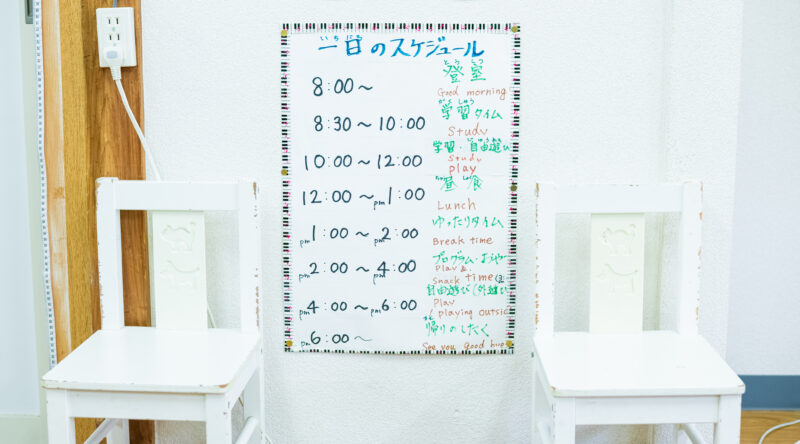 一日のスケジュール
8:00～ 登室
Good morning
8:30～10:00 学習タイム
Study
10:00～12:00 学習・自由遊び
Study
play
12:00～pm1:00 昼食
Lunch
pm1:00～pm2:00 ゆったりタイム
Break time
pm2:00～pm4:00 プログラム・おやつ
Play &
Snack time
pm4:00～pm6:00 自由遊び(外遊び
Play
(playing outsid
pm6:00～ 帰りのしたく
See you Good bye